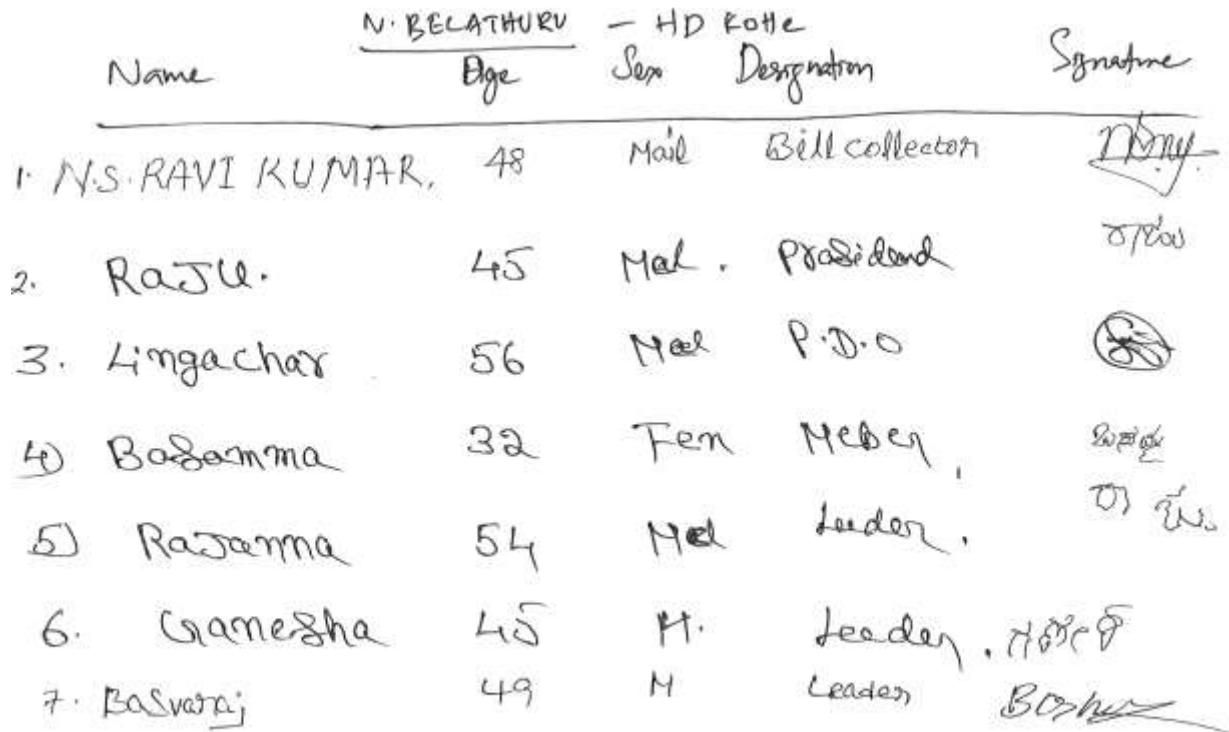 N. BELATHURU - HD Kotte
Name Age Sex Designation Signature
1. N.S. RAVI KUMAR. 48 Mail Bill collector
2. RaJU. 45 Mal. Prasidend
3. Lingachar 56 Mal P.D.O
4) Basamma 32 Fem Meber,
5) RaJanna 54 Mal Leader.
6. Ganesha 45 M. Leader. ಗಣೇಶ
7. Basvaraj 49 M Leader